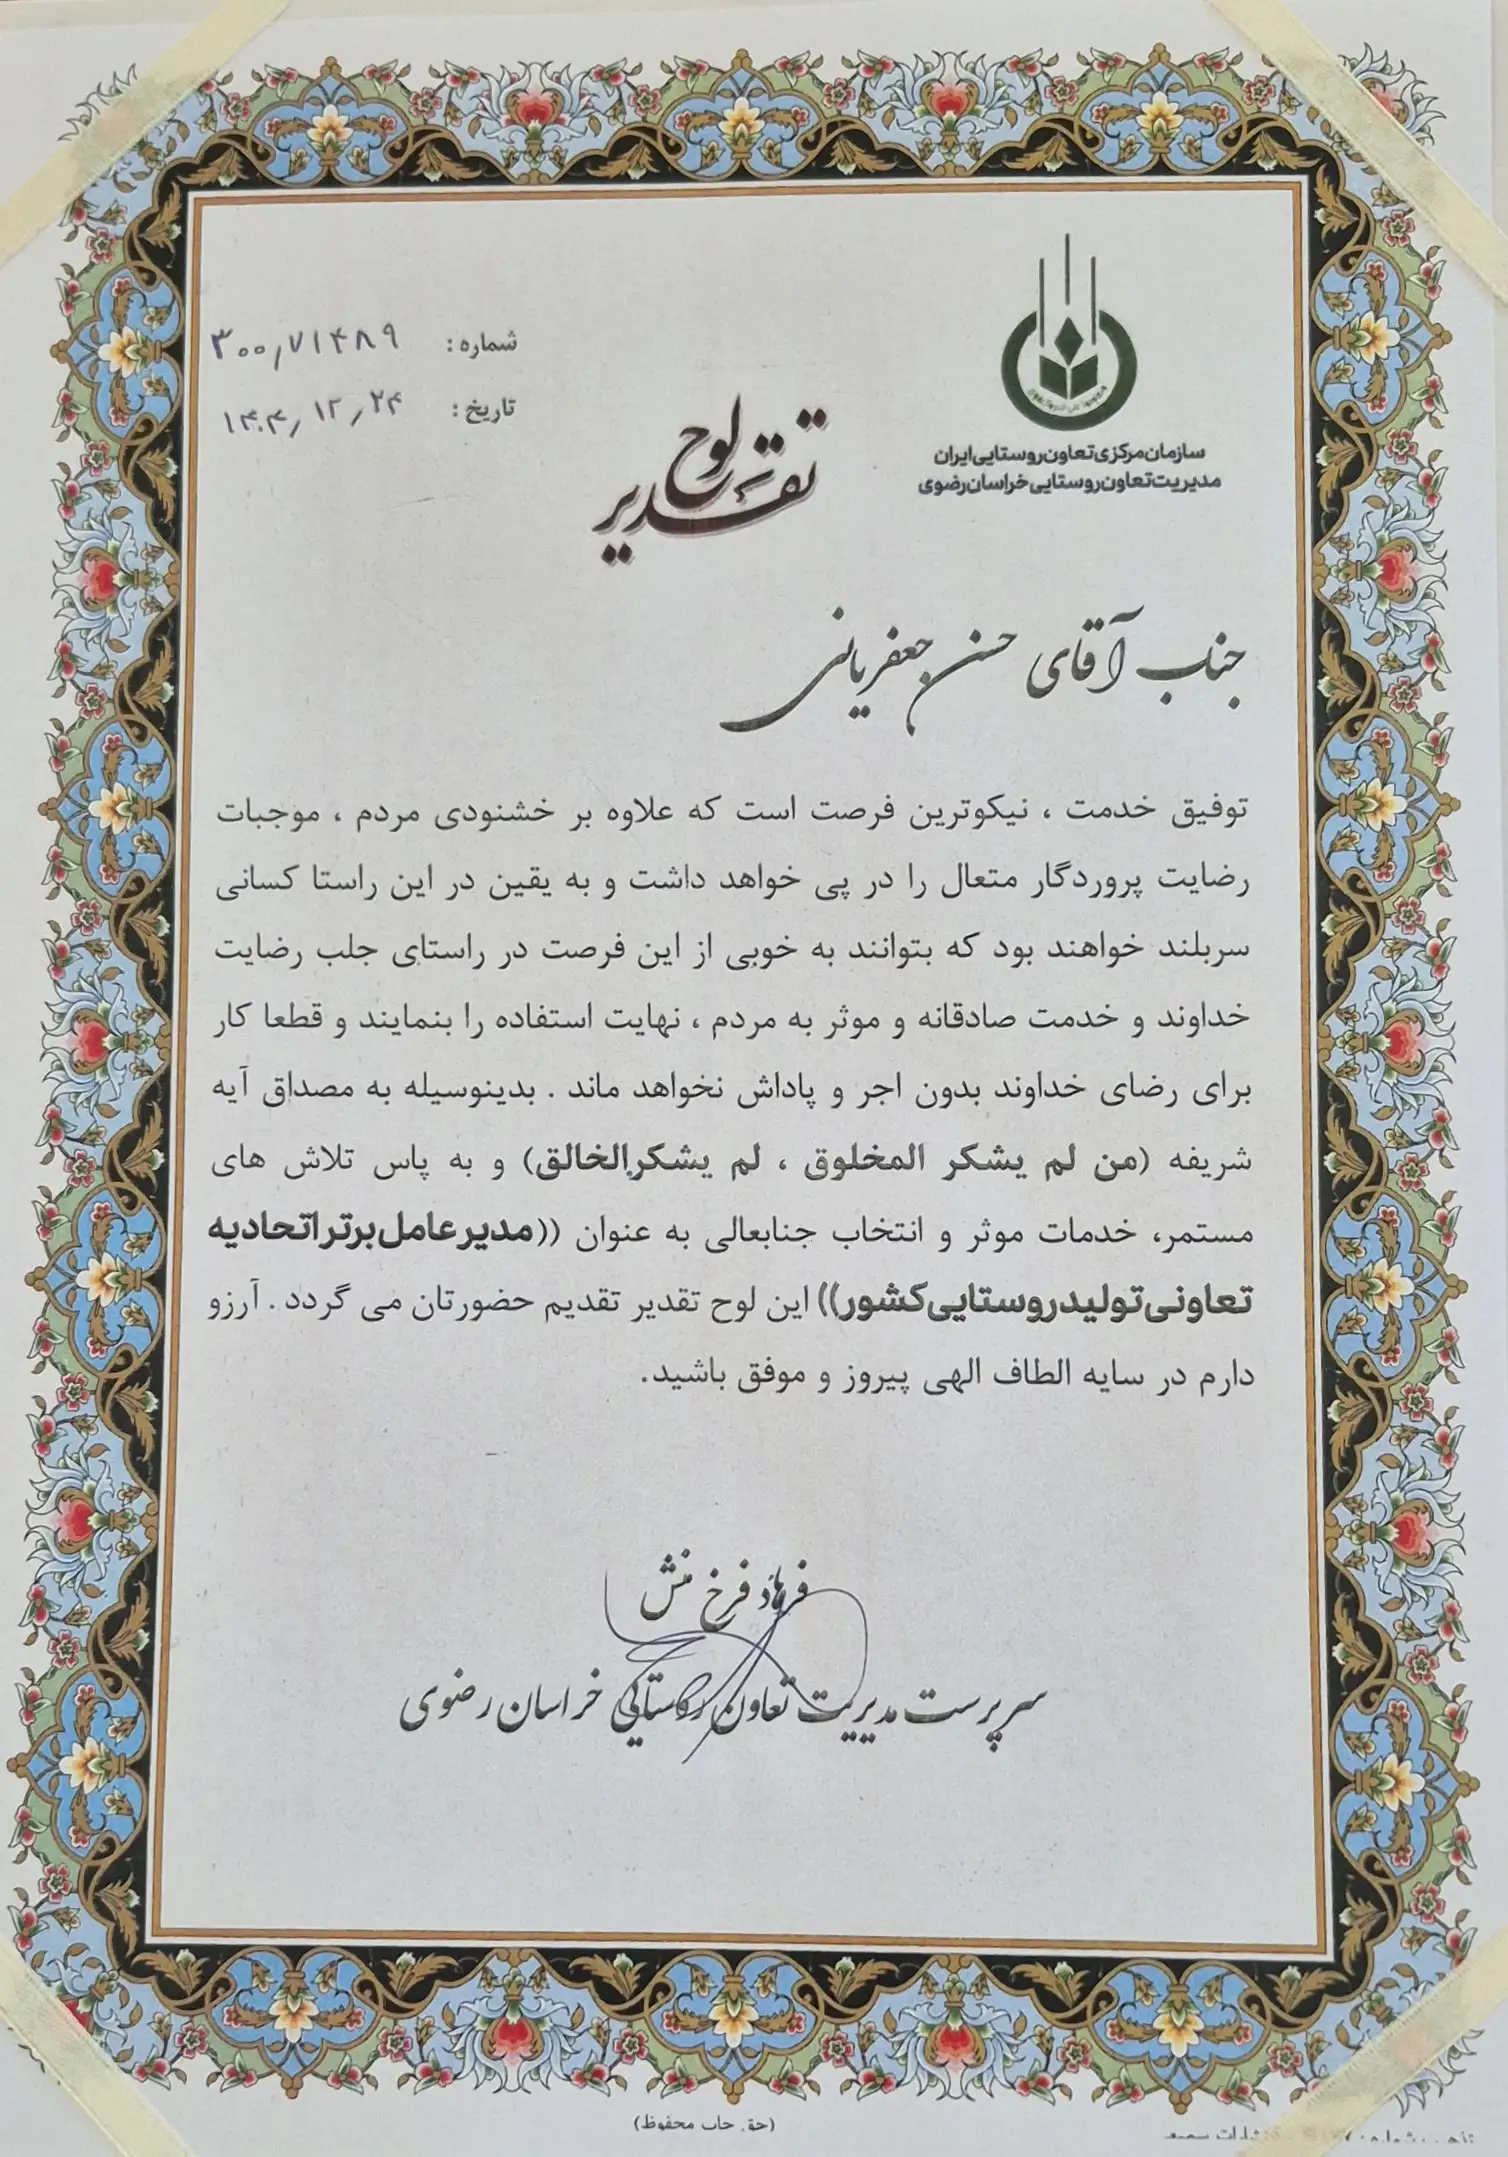 سازمان مرکزی تعاون روستایی ایران
مدیریت تعاون روستایی خراسان رضوی
شماره : ۳۰۰٫۷۱۴۸۹
تاریخ : ۱۴۰۴٫۱۲٫۲۴
لوح تقدیر
جناب آقای حسن جعفریانی
توفیق خدمت ، نیکوترین فرصت است که علاوه بر خشنودی مردم ، موجبات
رضایت پروردگار متعال را در پی خواهد داشت و به یقین در این راستا کسانی
سربلند خواهند بود که بتوانند به خوبی از این فرصت در راستای جلب رضایت
خداوند و خدمت صادقانه و موثر به مردم ، نهایت استفاده را بنمایند و قطعا کار
برای رضای خداوند بدون اجر و پاداش نخواهد ماند . بدینوسیله به مصداق آیه
شریفه (من لم یشکر المخلوق ، لم یشکرالخالق) و به پاس تلاش های
مستمر، خدمات موثر و انتخاب جنابعالی به عنوان ((مدیرعامل برتر اتحادیه
تعاونی تولید روستایی کشور)) این لوح تقدیر تقدیم حضورتان می گردد . آرزو
دارم در سایه الطاف الهی پیروز و موفق باشید.
فرهاد فرخ منش
سرپرست مدیریت تعاون روستایی خراسان رضوی
(حق چاپ محفوظ)